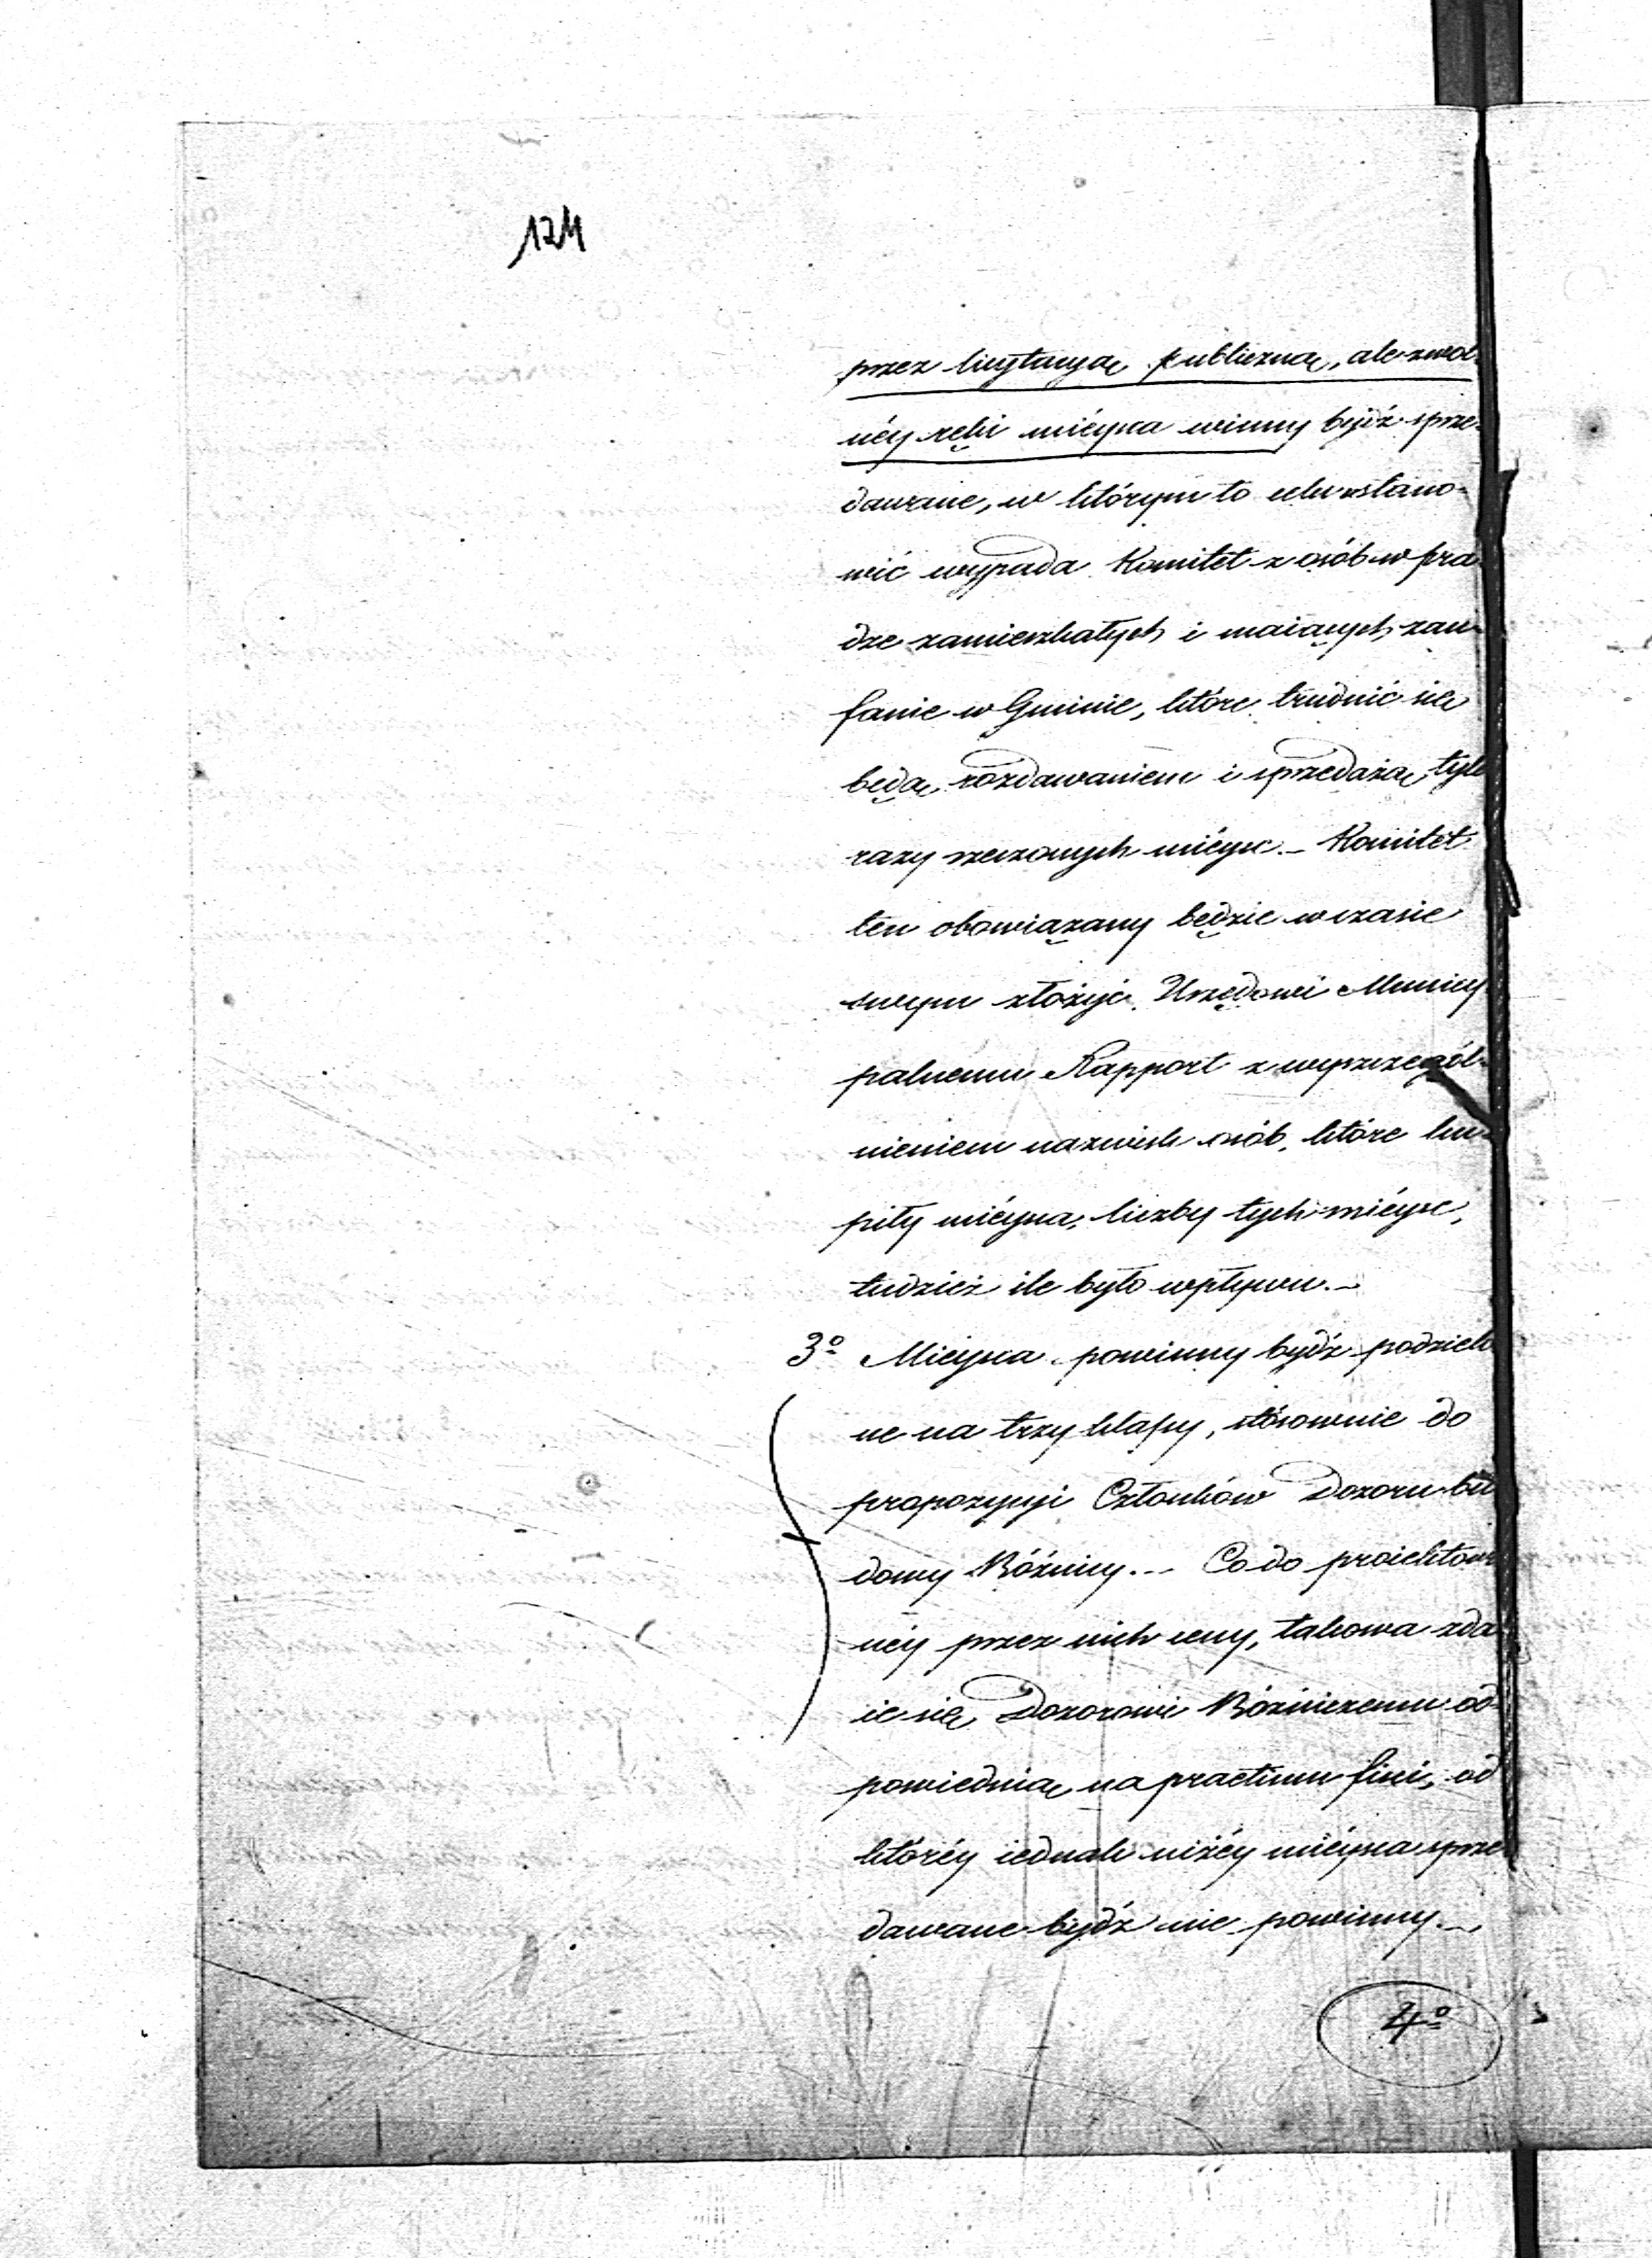 124
przez licytacyą publiczną, ale z wol-
néy ręki miéysca winny bydź sprze-
dawane, w którym to celu ustano-
wić wypada Komitet z osób w Pra-
dze zamieszkałych i maiących zau-
fanie w Gminie, które trudnić się
będą rozdawaniem i sprzedażą tyle
razy rzeczonych miéysc. – Komitet
ten obowiązany będzie w czasie
swym złożyć Urzędowi Municy-
palnemu Rapport z wyszczegól-
nieniem nazwisk osób, które ku-
piły miéysca, liczby tych miéysc,
tudzież ile było wpływu. –
3º Mieysca powinny bydź podzielo
ne na trzy klassy, stósownie do
propozycyi Członków Dozoru bu
dowy Bóżnicy. – Co do proiektowa
néy przez nich ceny, takowa zda
ie się Dozorowi Bóżniczemu od-
powiednią na praetium fisci, od
któréy iednak niżéy miéysca sprze
dawane bydź nie powinny. –
4º